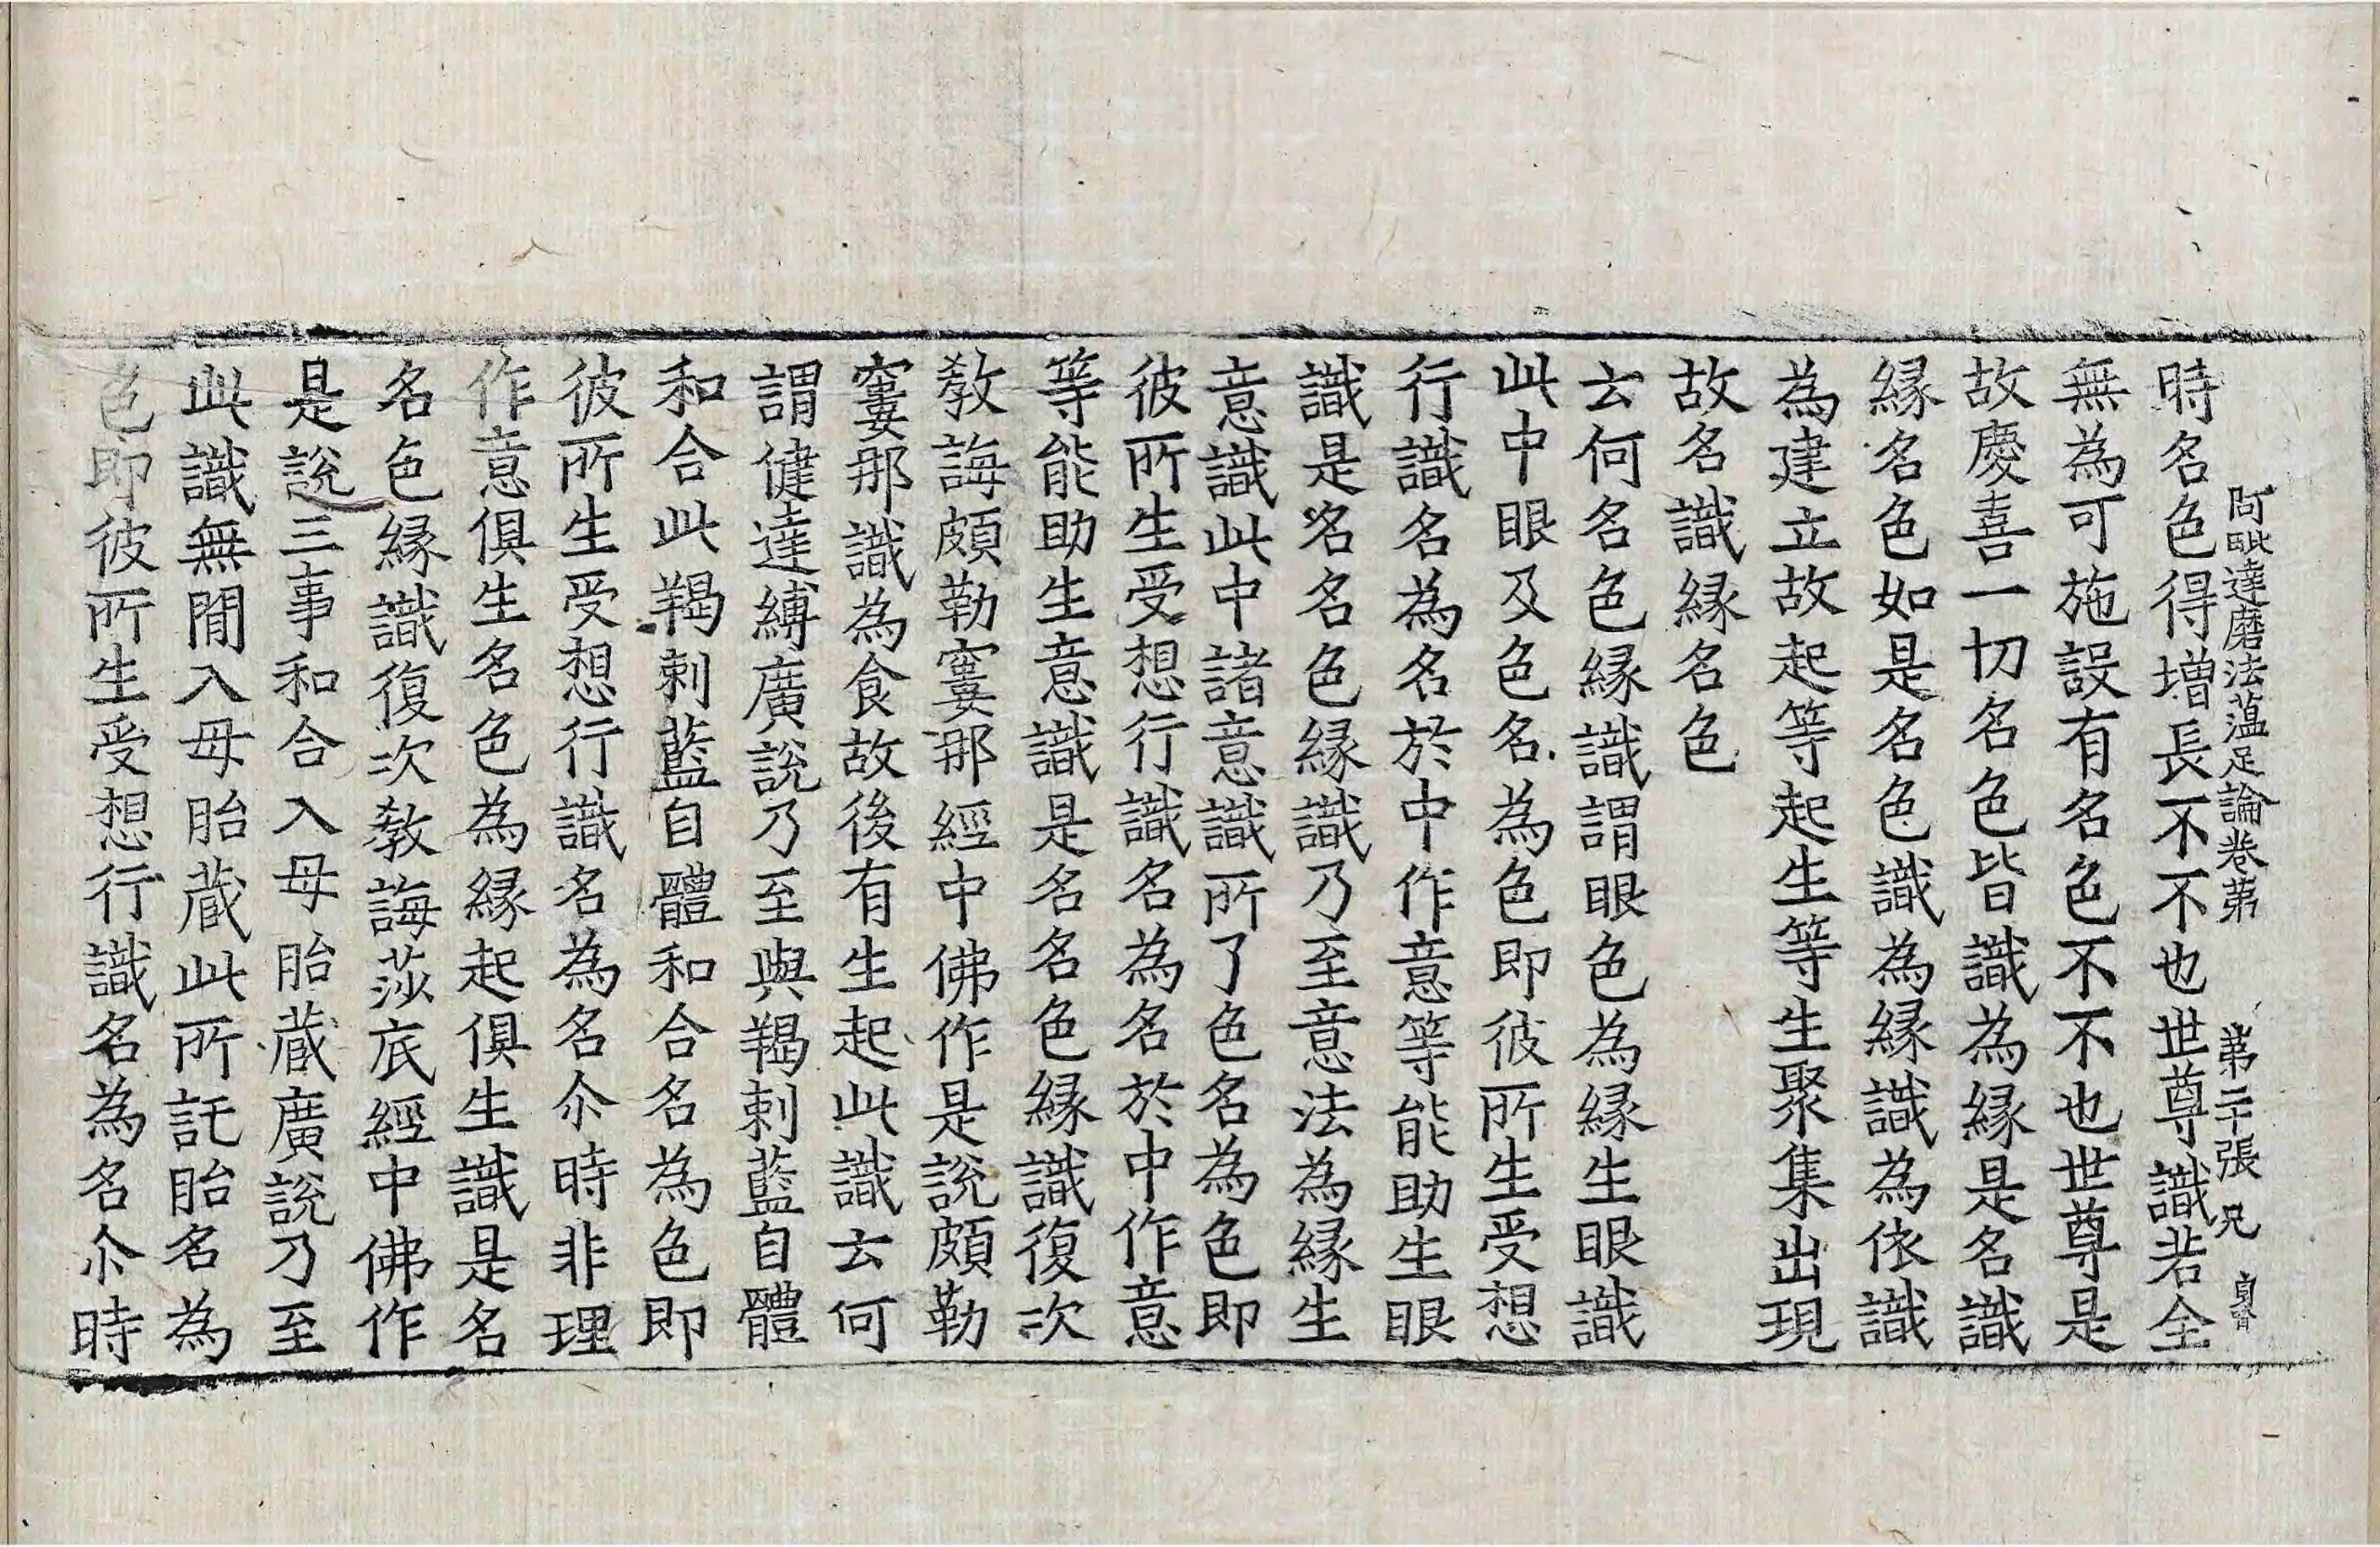 阿毗達磨法蘊足論卷第　第二十張　兄
時名色得增長不不也世尊識若全
無為可施設有名色不不也世尊是
故慶喜一切名色皆識為緣是名識
緣名色如是名色識為緣識為依識
為建立故起等起生等生聚集出現
故名識緣名色
云何名色緣識謂眼色為緣生眼識
此中眼及色名為色即彼所生受想
行識名為名於中作意等能助生眼
識是名名色緣識乃至意法為緣生
意識此中諸意識所了色名為色即
彼所生受想行識名為名於中作意
等能助生意識是名名色緣識復次
教誨頗勒窶那經中佛作是說頗勒
窶那識為食故後有生起此識云何
謂健達縛廣說乃至與羯剌藍自體
和合此羯剌藍自體和合名為色即
彼所生受想行識名為名尒時非理
作意俱生名色為緣起俱生識是名
名色緣識復次教誨莎底經中佛作
是說三事和合入母胎藏廣說乃至
此識無間入母胎藏此所託胎名為
色即彼所生受想行識名為名尒時